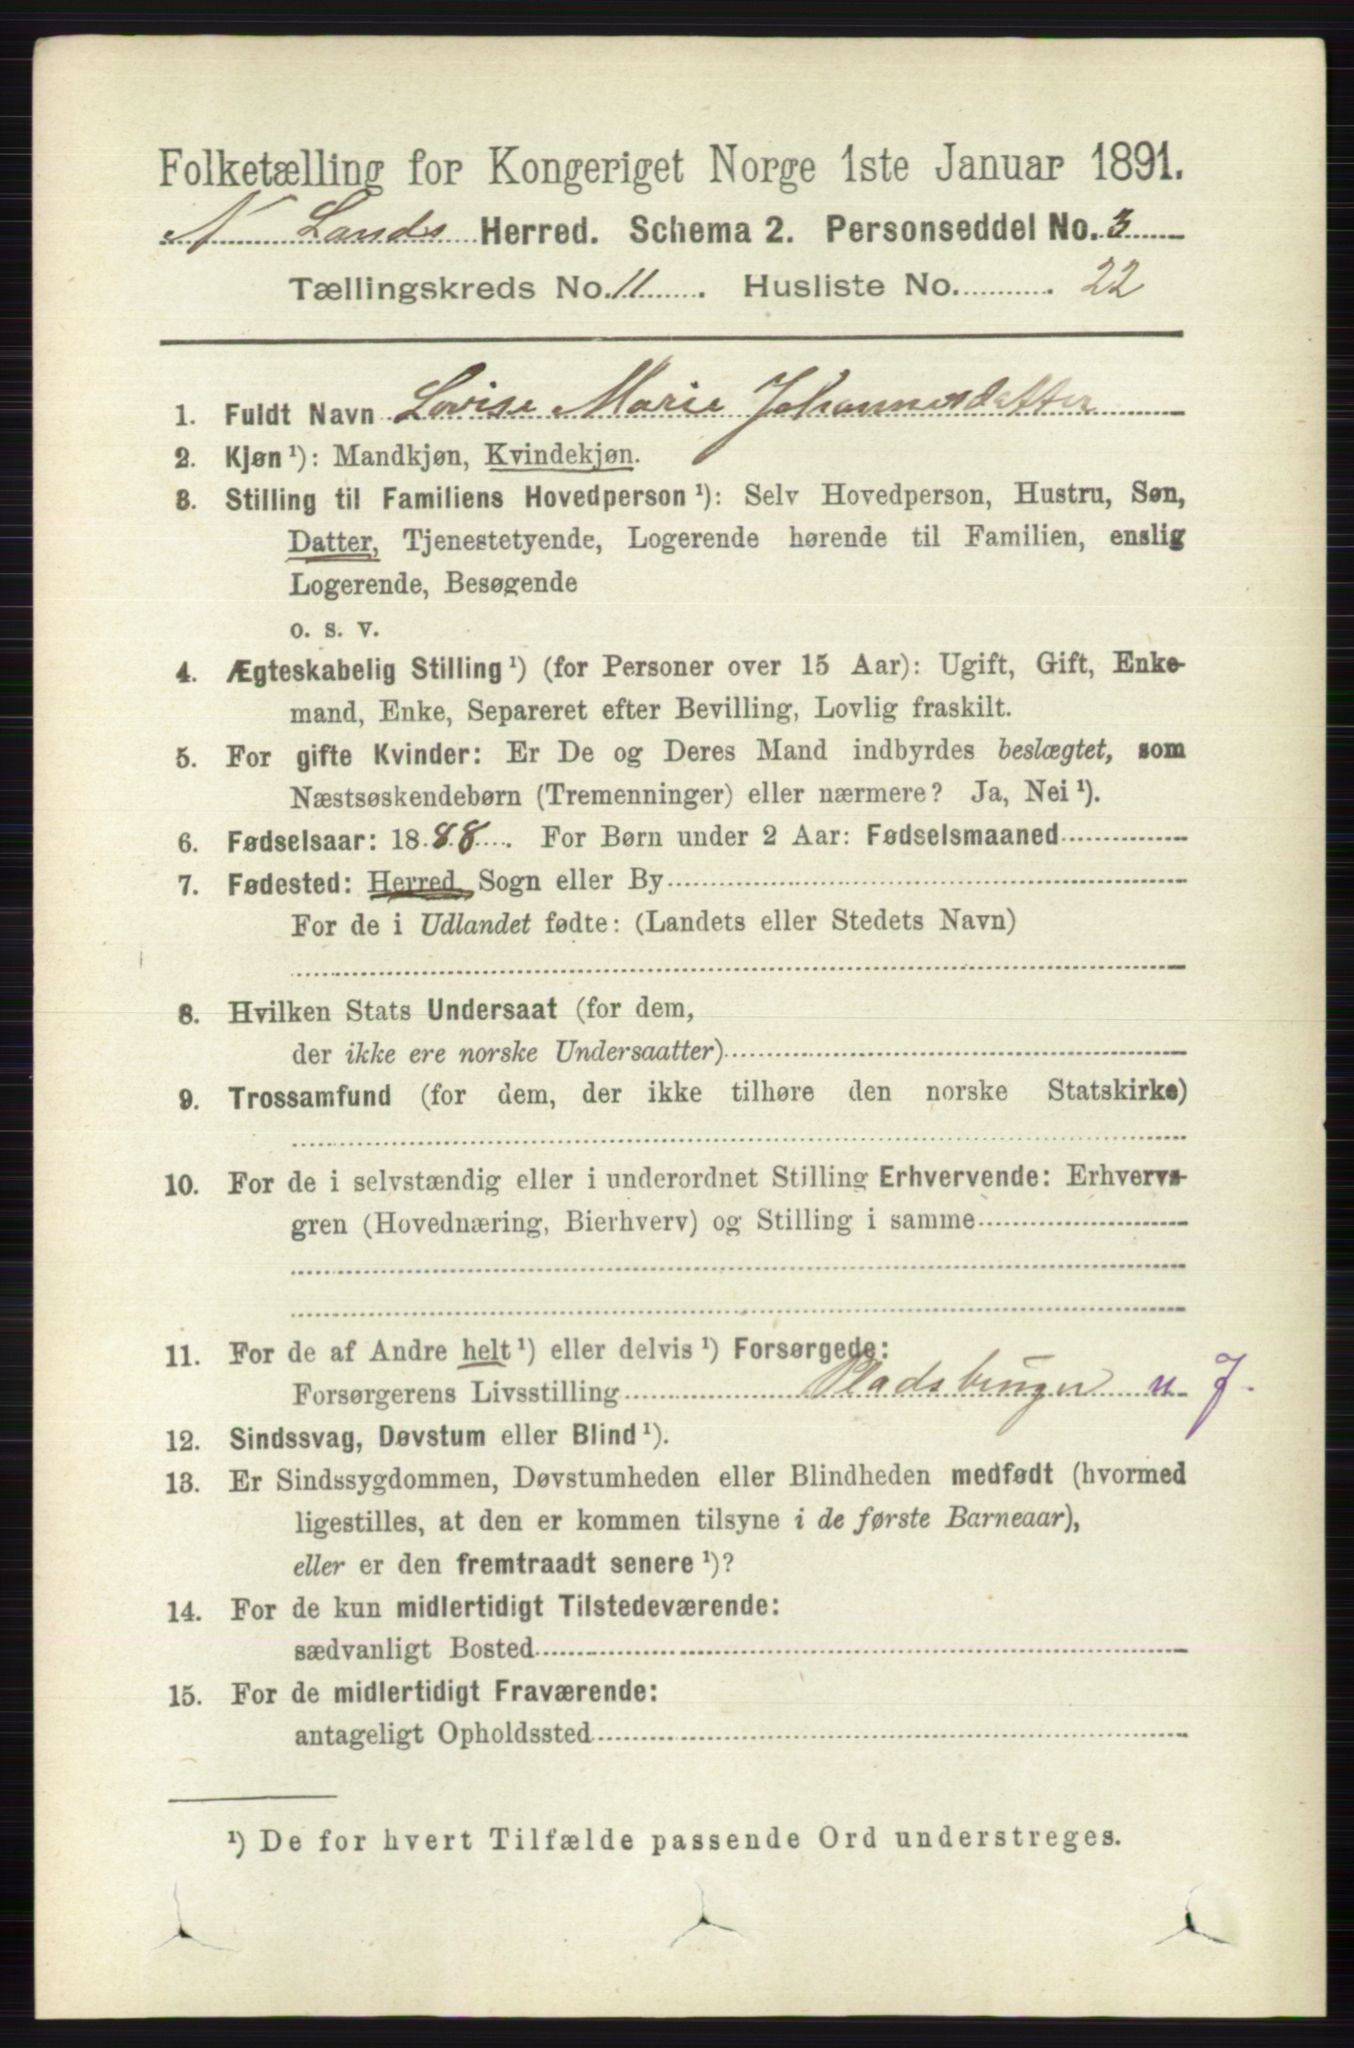 Folketælling for Kongeriget Norge 1ste Januar 1891.
N Lands Herred. Schema 2. Personseddel No. 3
Tællingskreds No. 11. Husliste No. 22
1. Fuldt Navn Lovise Marie Johannesdatter
2. Kjøn ¹): Mandkjøn, Kvindekjøn.
3. Stilling til Familiens Hovedperson ¹): Selv Hovedperson, Hustru, Søn,
Datter, Tjenestetyende, Logerende hørende til Familien, enslig
Logerende, Besøgende
o. s. v.
4. Ægteskabelig Stilling ¹) (for Personer over 15 Aar): Ugift, Gift, Enke-
mand, Enke, Separeret efter Bevilling, Lovlig fraskilt.
5. For gifte Kvinder: Er De og Deres Mand indbyrdes beslægtet, som
Næstsøskendebørn (Tremenninger) eller nærmere? Ja, Nei ¹).
6. Fødselsaar: 1888. For Børn under 2 Aar: Fødselsmaaned
7. Fødested: Herred, Sogn eller By
For de i Udlandet fødte: (Landets eller Stedets Navn)
8. Hvilken Stats Undersaat (for dem,
der ikke ere norske Undersaatter)
9. Trossamfund (for dem, der ikke tilhøre den norske Statskirke)
10. For de i selvstændig eller i underordnet Stilling Erhvervende: Erhvervs-
gren (Hovednæring, Bierhverv) og Stilling i samme
11. For de af Andre helt ¹) eller delvis ¹) Forsørgede:
Forsørgerens Livsstilling Pladsbruger u J.
12. Sindssvag, Døvstum eller Blind ¹).
13. Er Sindssygdommen, Døvstumheden eller Blindheden medfødt (hvormed
ligestilles, at den er kommen tilsyne i de første Barneaar),
eller er den fremtraadt senere ¹)?
14. For de kun midlertidigt Tilstedeværende:
sædvanligt Bosted
15. For de midlertidigt Fraværende:
antageligt Opholdssted
¹) De for hvert Tilfælde passende Ord understreges.